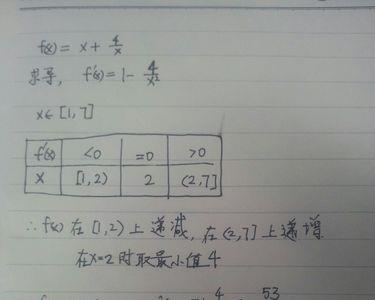 f(x) = x + 4/x
求导, f'(x) = 1 - 4/x²
x∈[1,7]
f'(x) <0 =0 >0
x [1,2) 2 (2,7]
∴ f(x) 在 [1,2) 上递减, 在 (2,7] 上递增
在x=2时取最小值4